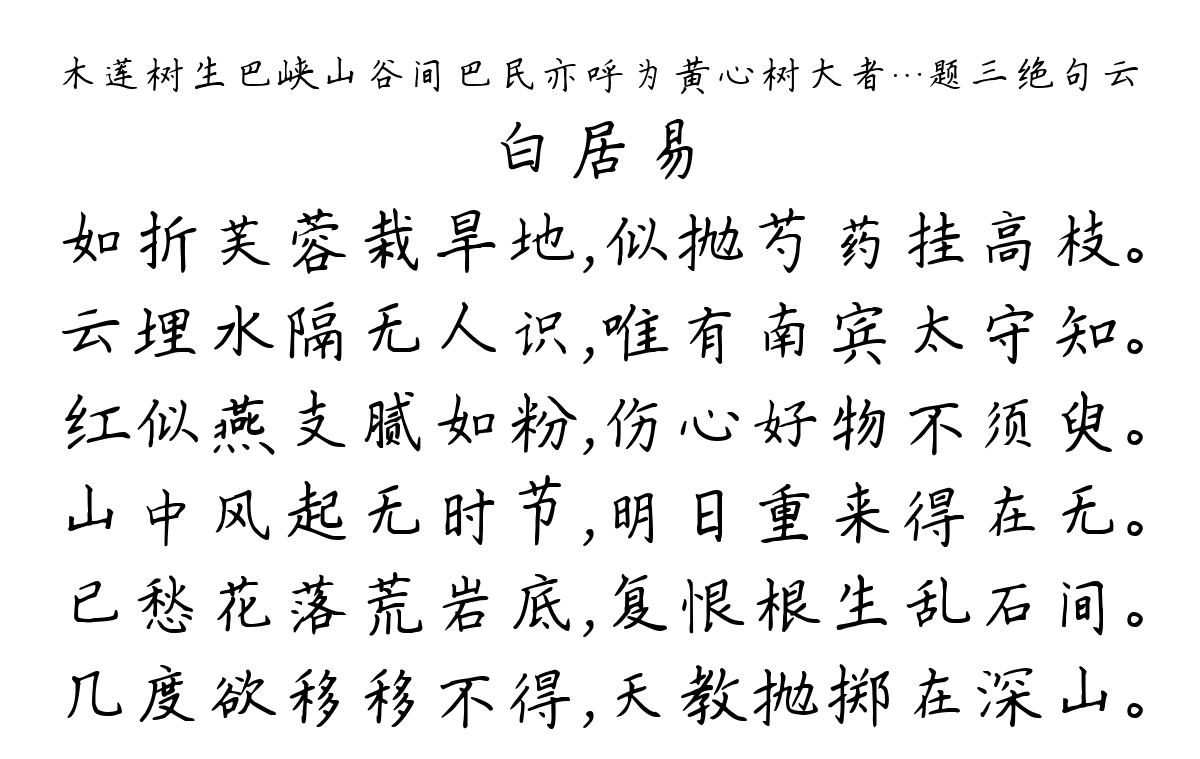 木莲树生巴峡山谷间巴民亦呼为黄心树大者…题三绝句云
白居易
如折芙蓉栽旱地,似抛芍药挂高枝。
云埋水隔无人识,唯有南宾太守知。
红似燕支腻如粉,伤心好物不须臾。
山中风起无时节,明日重来得在无。
已愁花落荒岩底,复恨根生乱石间。
几度欲移移不得,天教抛掷在深山。